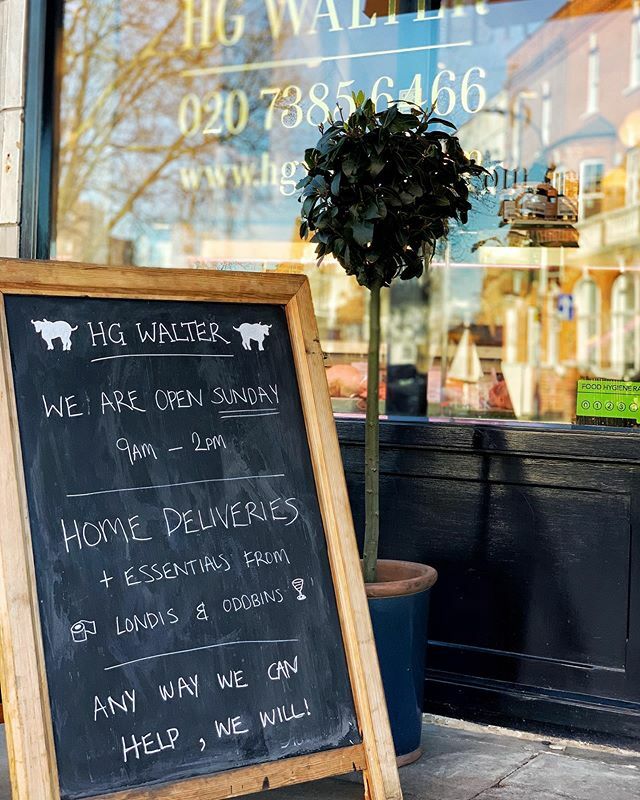 HG WALTER
020 7385 6466
www.hg
HG WALTER
WE ARE OPEN SUNDAY
9AM – 2PM
HOME DELIVERIES
+ ESSENTIALS FROM
LONDIS & ODDBINS
ANY WAY WE CAN
HELP, WE WILL!
FOOD HYGIENE RA
0 1 2 3